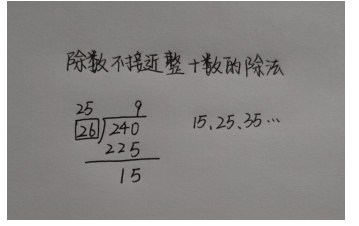 除数不接近整十数的除法
25 9
26 240 15、25、35…
225
15